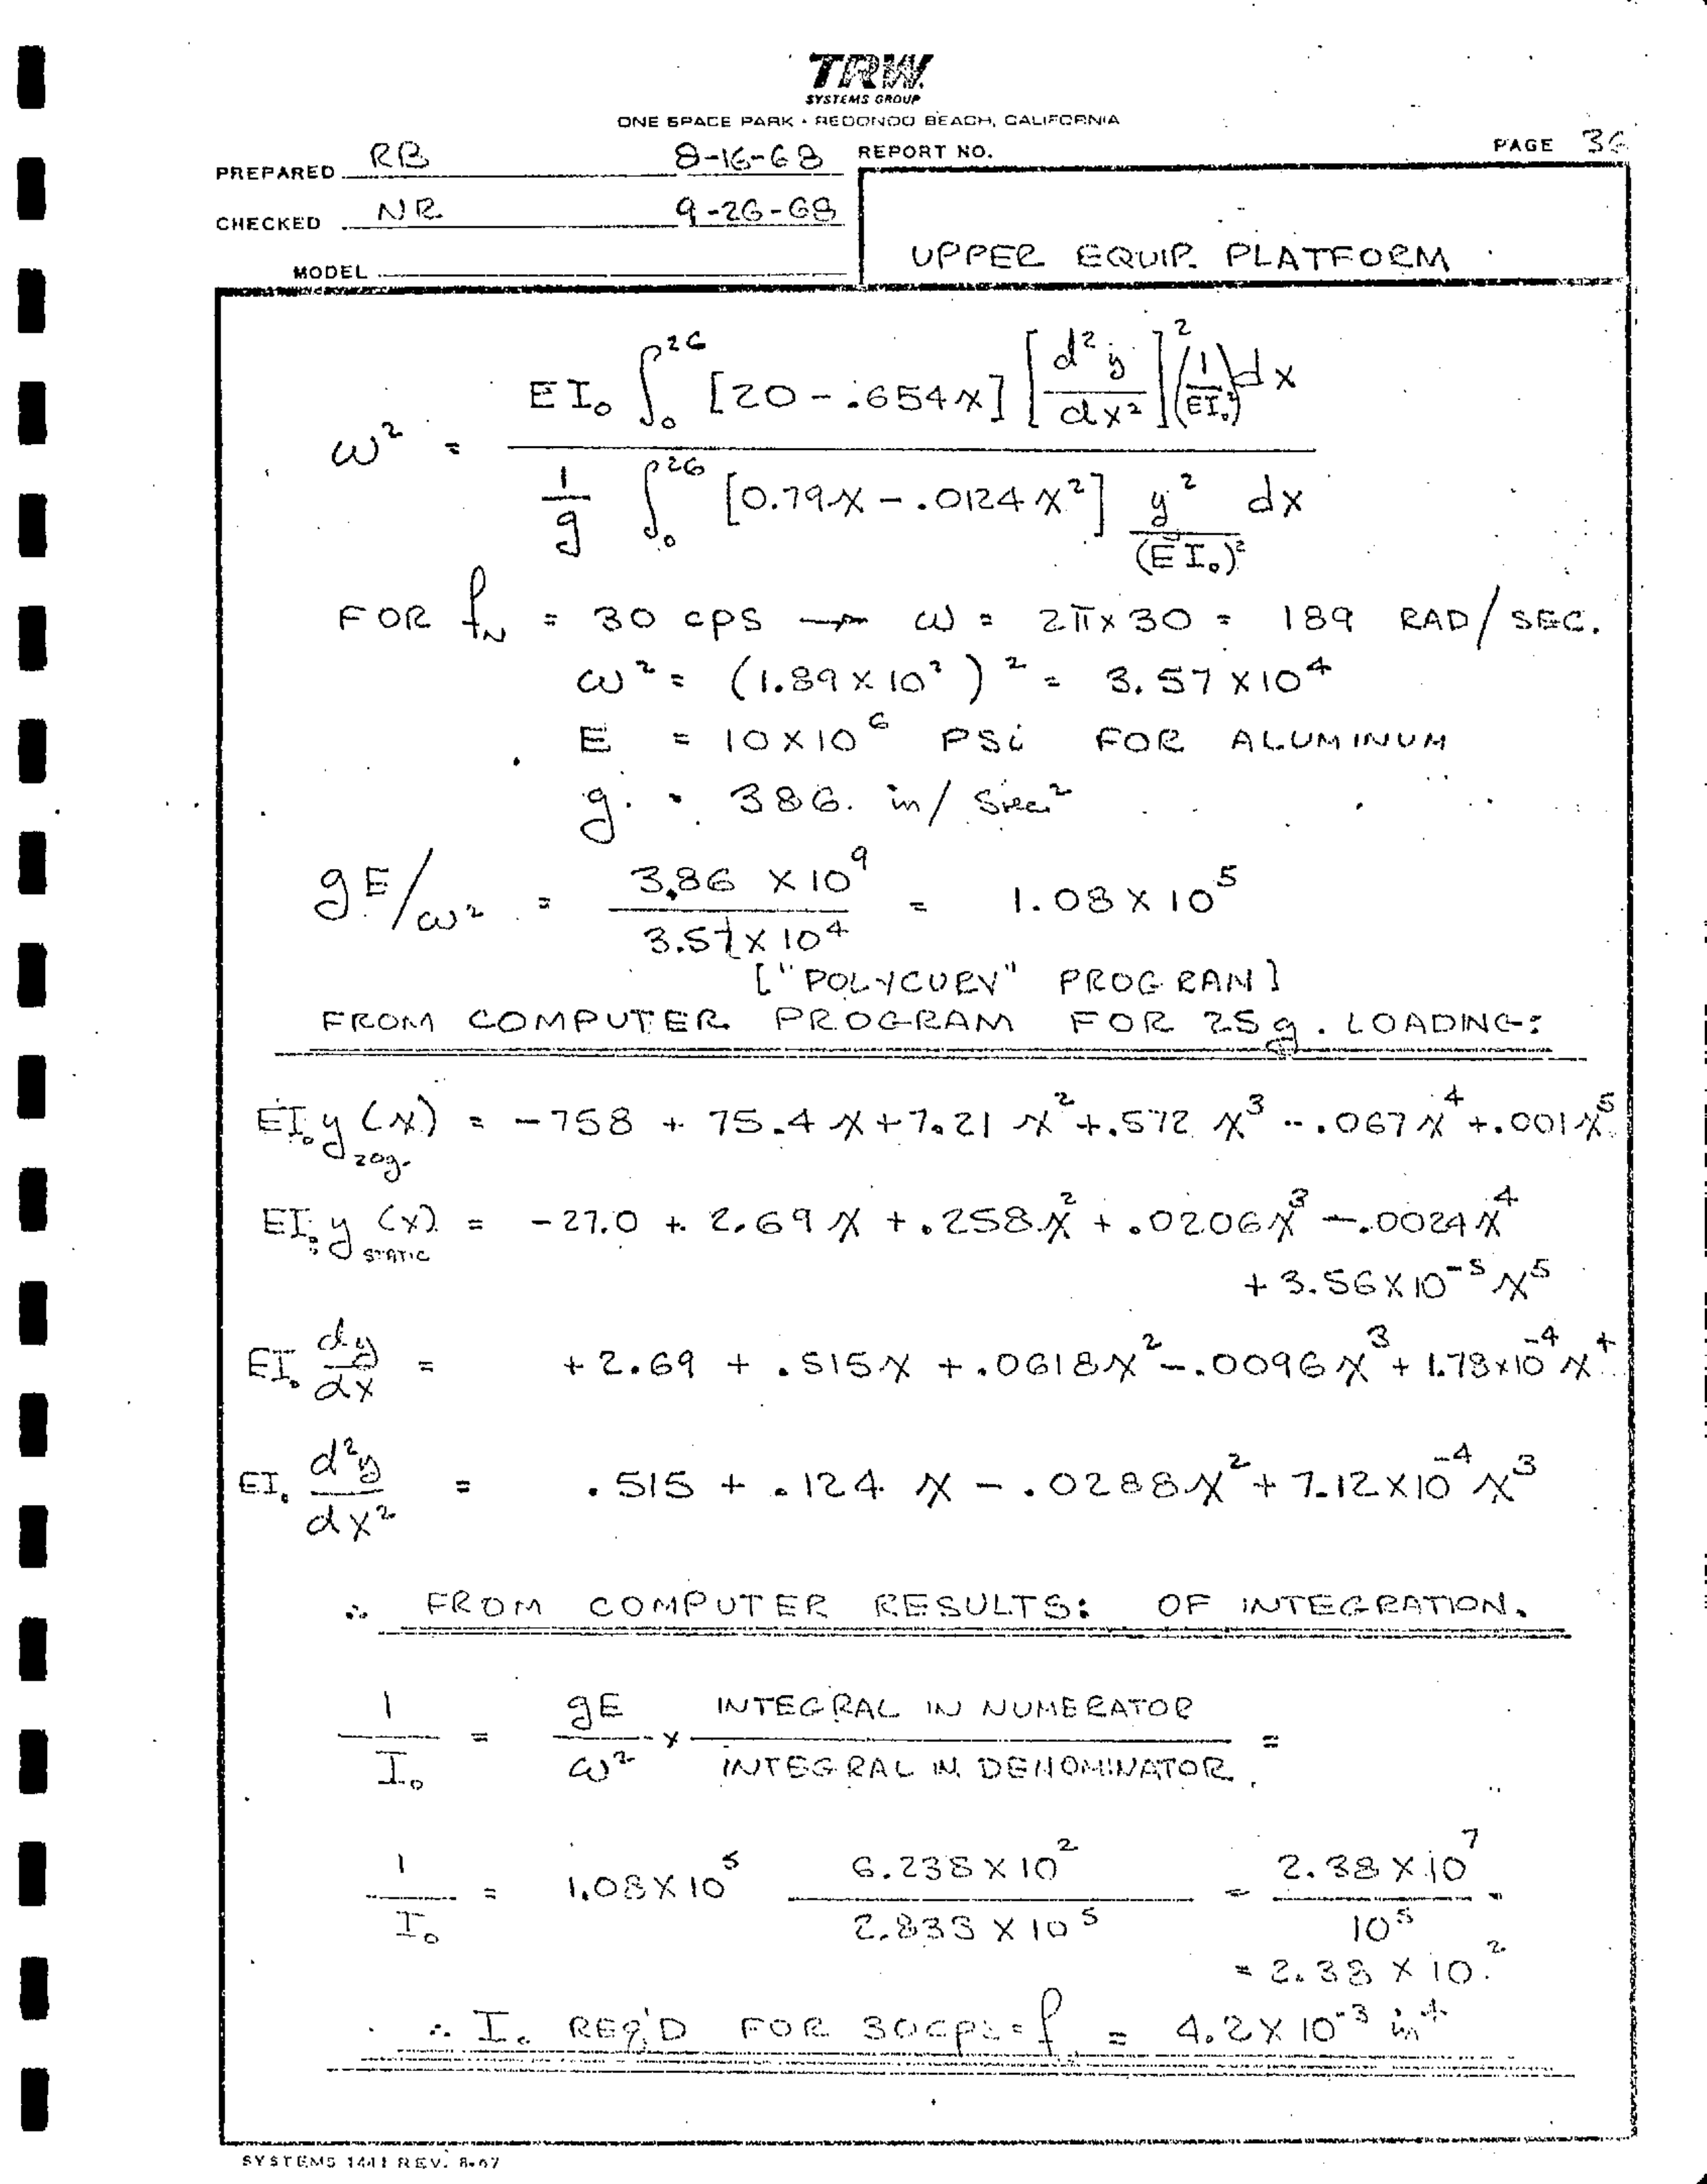 TRW
SYSTEMS GROUP
ONE SPACE PARK • REDONDO BEACH, CALIFORNIA
PREPARED RB 8-16-68 REPORT NO. PAGE 36
CHECKED NR 9-26-68
MODEL
UPPER EQUIP. PLATFORM
ω² = EI₀ ∫₀²⁶ [20 - .654x] [d²y/dx²]² (1/EI₀)² dx / (1/g) ∫₀²⁶ [0.79x - .0124x²] y²/(EI₀)² dx
FOR f_N = 30 cps → ω = 2π x 30 = 189 RAD/SEC.
ω² = (1.89 x 10²)² = 3.57 x 10⁴
E = 10 x 10⁶ PSi FOR ALUMINUM
g. = 386. in/sec²
gE/ω² = 3.86 x 10⁹ / 3.57 x 10⁴ = 1.08 x 10⁵
["POLYCURV" PROGRAM]
FROM COMPUTER PROGRAM FOR 25g. LOADING:
EI₀y(x)20g. = -758 + 75.4x + 7.21x² + .572x³ - .067x⁴ + .001x⁵
EI₀y(x)STATIC = -27.0 + 2.69x + .258x² + .0206x³ - .0024x⁴
+ 3.56 x 10⁻⁵ x⁵
EI₀ dy/dx = +2.69 + .515x + .0618x² - .0096x³ + 1.78 x 10⁻⁴ x⁴
EI₀ d²y/dx² = .515 + .124x - .0288x² + 7.12 x 10⁻⁴ x³
∴ FROM COMPUTER RESULTS: OF INTEGRATION.
1/I₀ = gE/ω² x INTEGRAL IN NUMERATOR / INTEGRAL IN DENOMINATOR =
1/I₀ = 1.08 x 10⁵ 6.238 x 10² / 2.833 x 10⁵ = 2.38 x 10⁷ / 10⁵ =
= 2.38 x 10²
∴ I₀ REQ'D FOR 30cps = f = 4.2 x 10⁻³ in⁴
SYSTEMS 1441 REV. 8-67